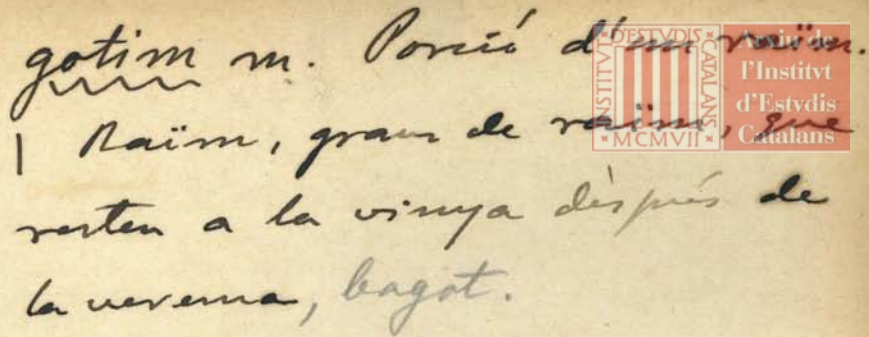 gotim m. Porció d'un raïm.
| Raïm, grans de raïm, que
resten a la vinya dèsprés de
la verema, bagot.
INSTITVT D'ESTVDIS CATALANS
MCMVII
Arxiu de
l'Institvt
d'Estvdis
Catalans